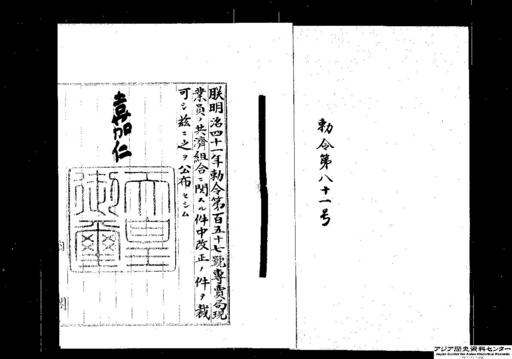 勅令第八十一号
朕明治四十一年勅令第百五十七號專賣局現
業員ノ共濟組合ニ関スル件中改正ノ件ヲ裁
可シ茲ニ之ヲ公布セシム
嘉仁
天皇
御璽
アジア歴史資料センター
Japan Center for Asian Historical Records